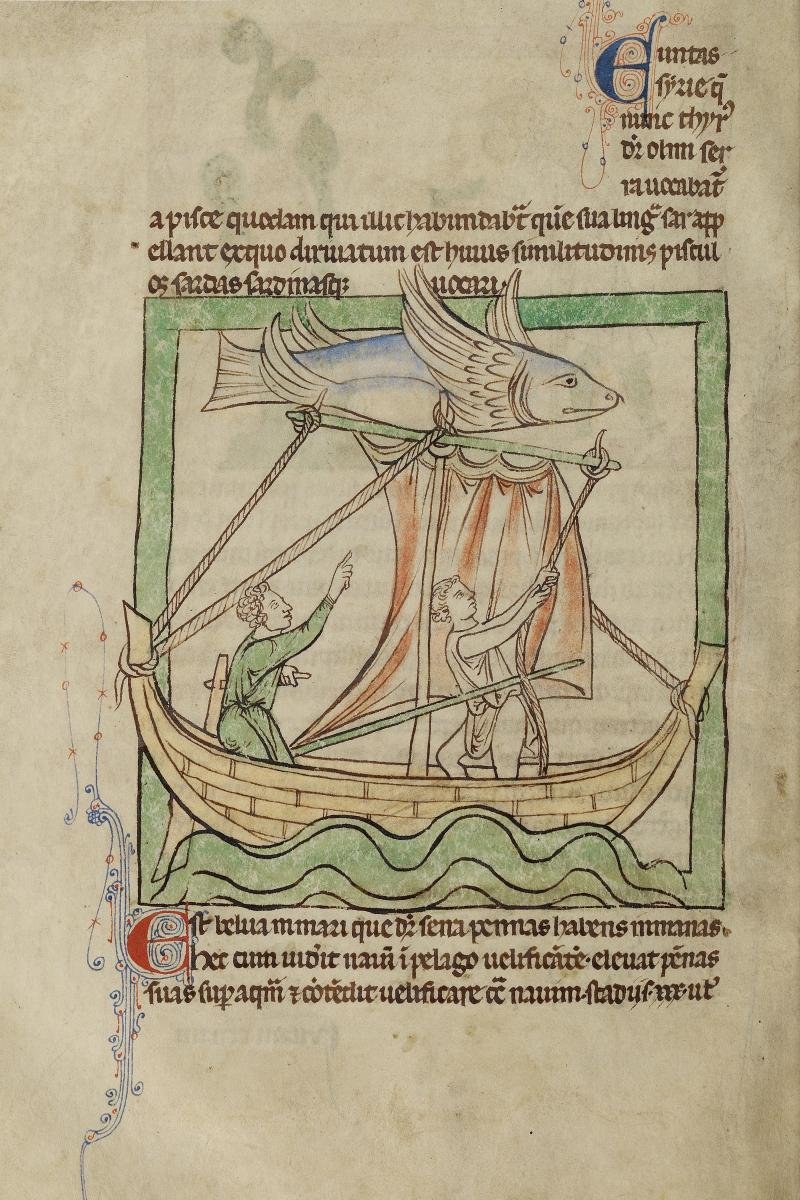 Euntas
syrie q̃
nunc thyr᷒
dr̃ olim ser
ra uocabat᷑
a pisce quodam qui illic habundabt̃ que͂ sua ling̃ sar app
ellant ex quo diriuatum est huius similitudinis piscicul
os sardas sardinasq; uocari.
Est belua in mari que dr̃ serra pennas habens inmanas.
hec cum uiderit nauẽ ĩ pelago uelificãtẽ. eleuat pẽnas
suas sup aquã ⁊ cõtẽdit uelificare cõ nauim. stadijs. xxx. ut᷑